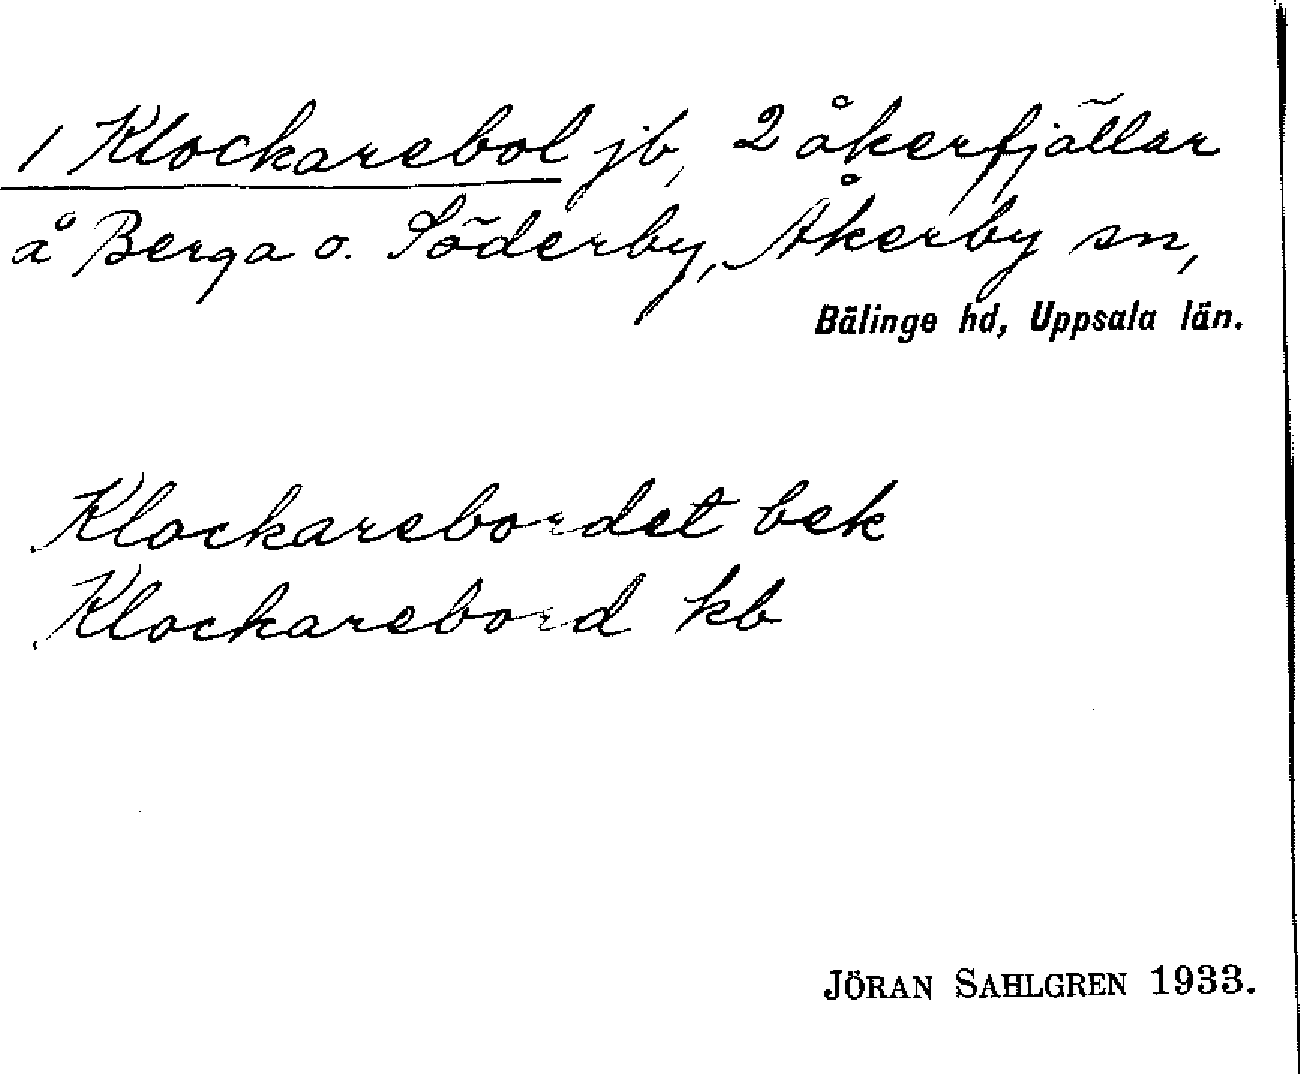 1 Klockarebol jb, 2 åkerfjällar
å Berga o. Söderby, Åkerby sn,
Bälinge hd, Uppsala län.
Klockarebordet bek
Klockarebord kb
JÖRAN SAHLGREN 1933.